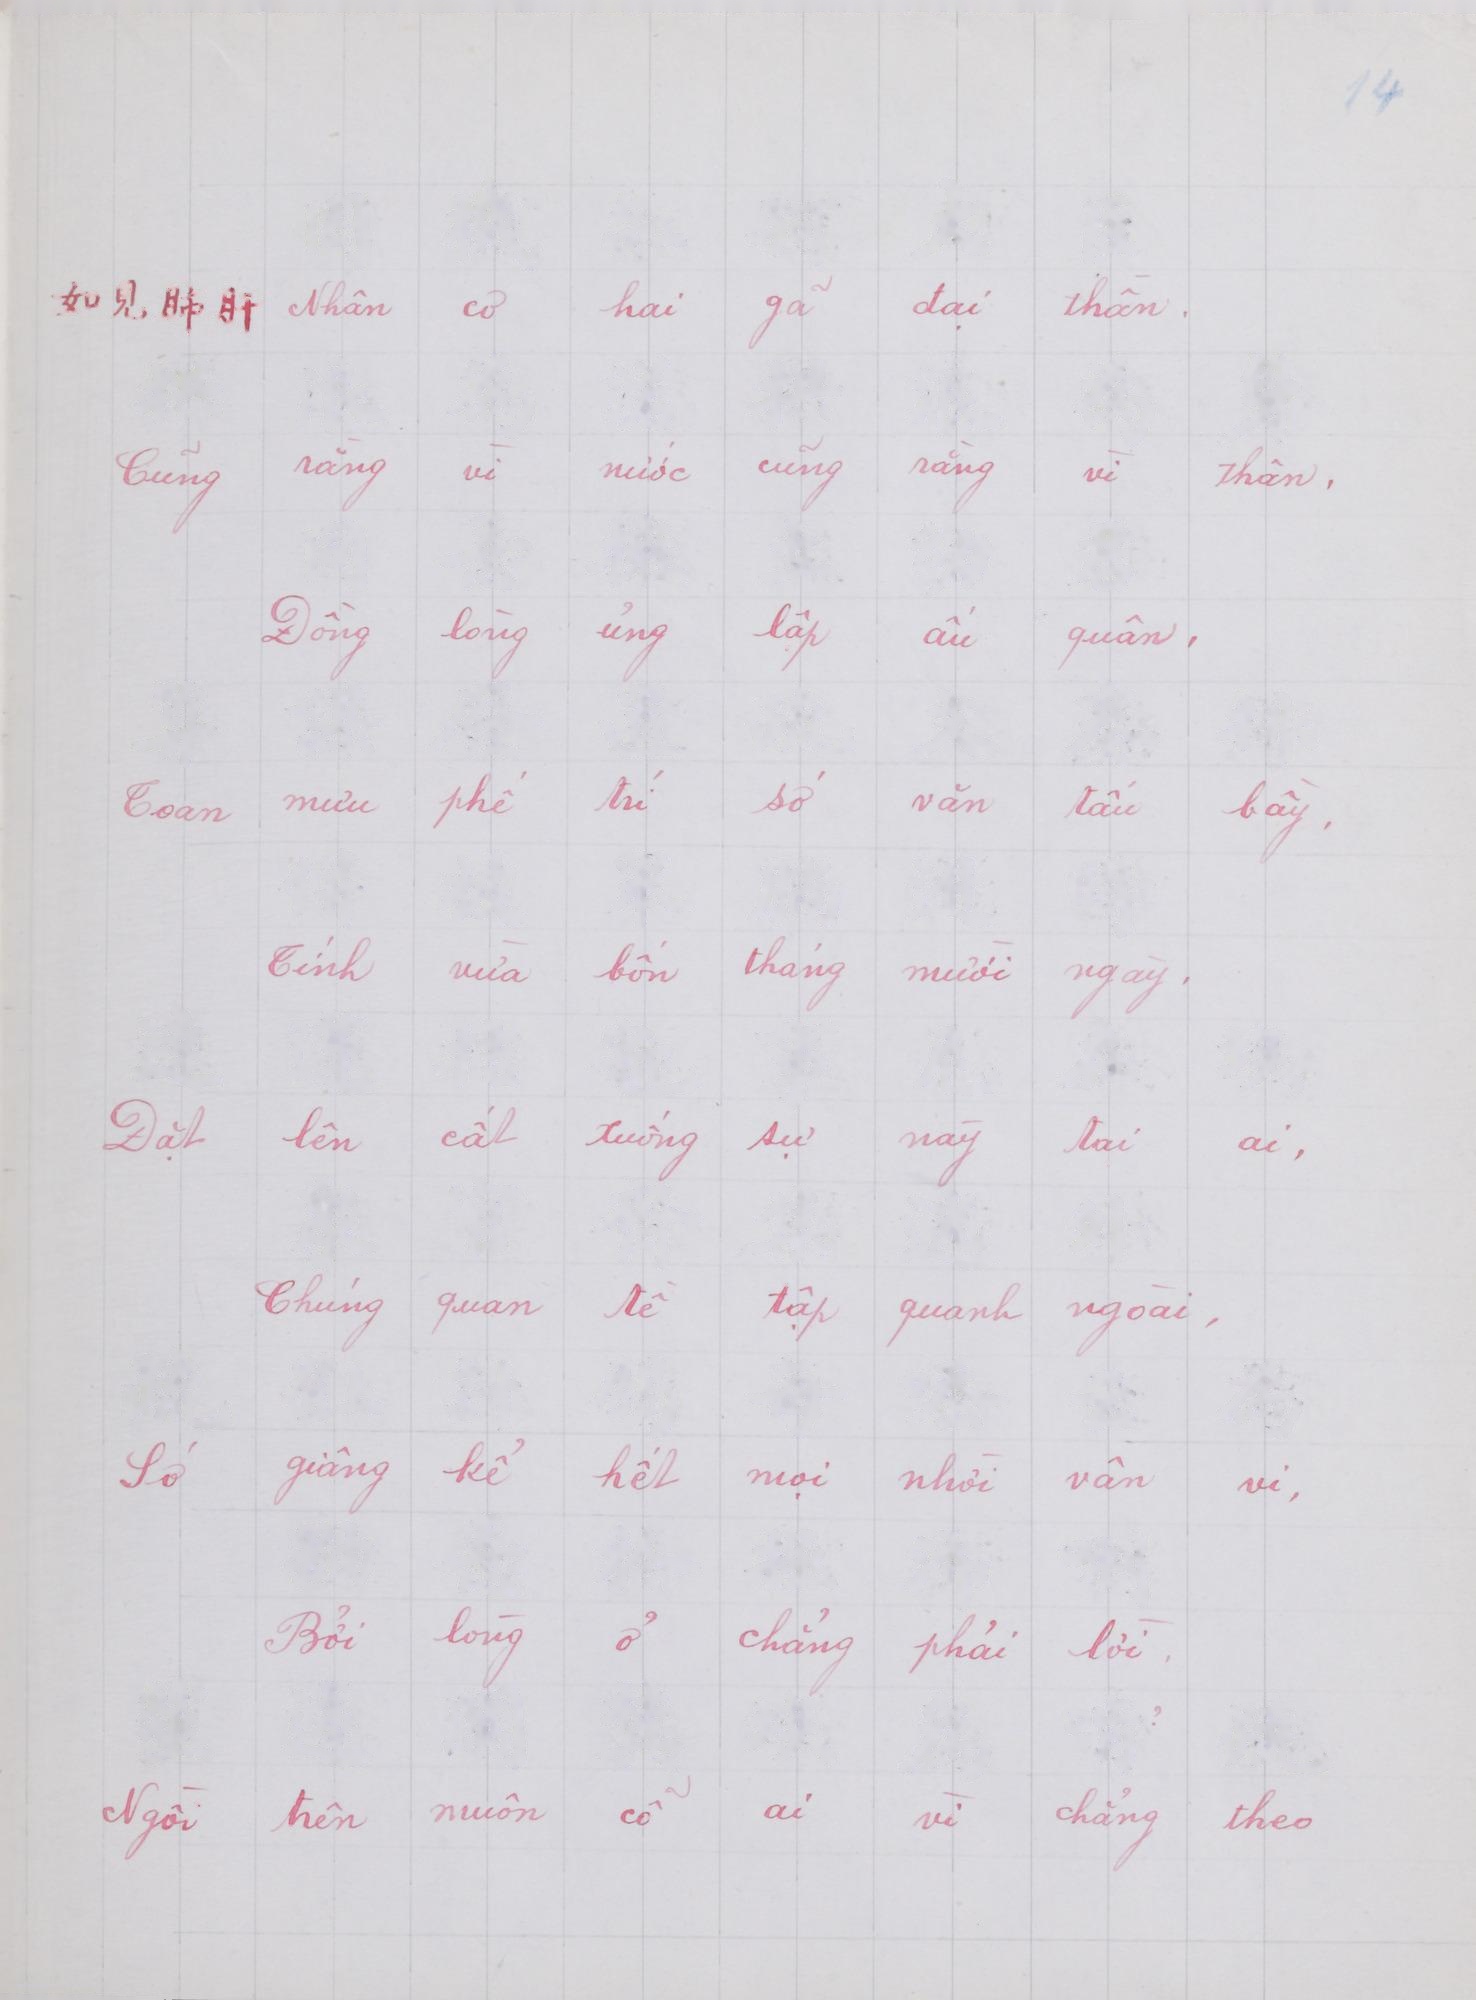 14
如見肺肝 Nhân có hai gã đại thần.
Cũng rằng vì nước cũng rằng vì thân,
Đồng lòng ủng lập ấu quân,
Toan mưu phế trí số văn tấu bầy,
Tính vừa bốn tháng mười ngày.
Đặt lên cất xuống sự này tại ai,
Chúng quan tề tập quanh ngoài,
Số giâng kể hết mọi nhời vân vi,
Bởi lòng ở chẳng phải lời.
Ngồi trên muôn cỗ ai vì chẳng theo